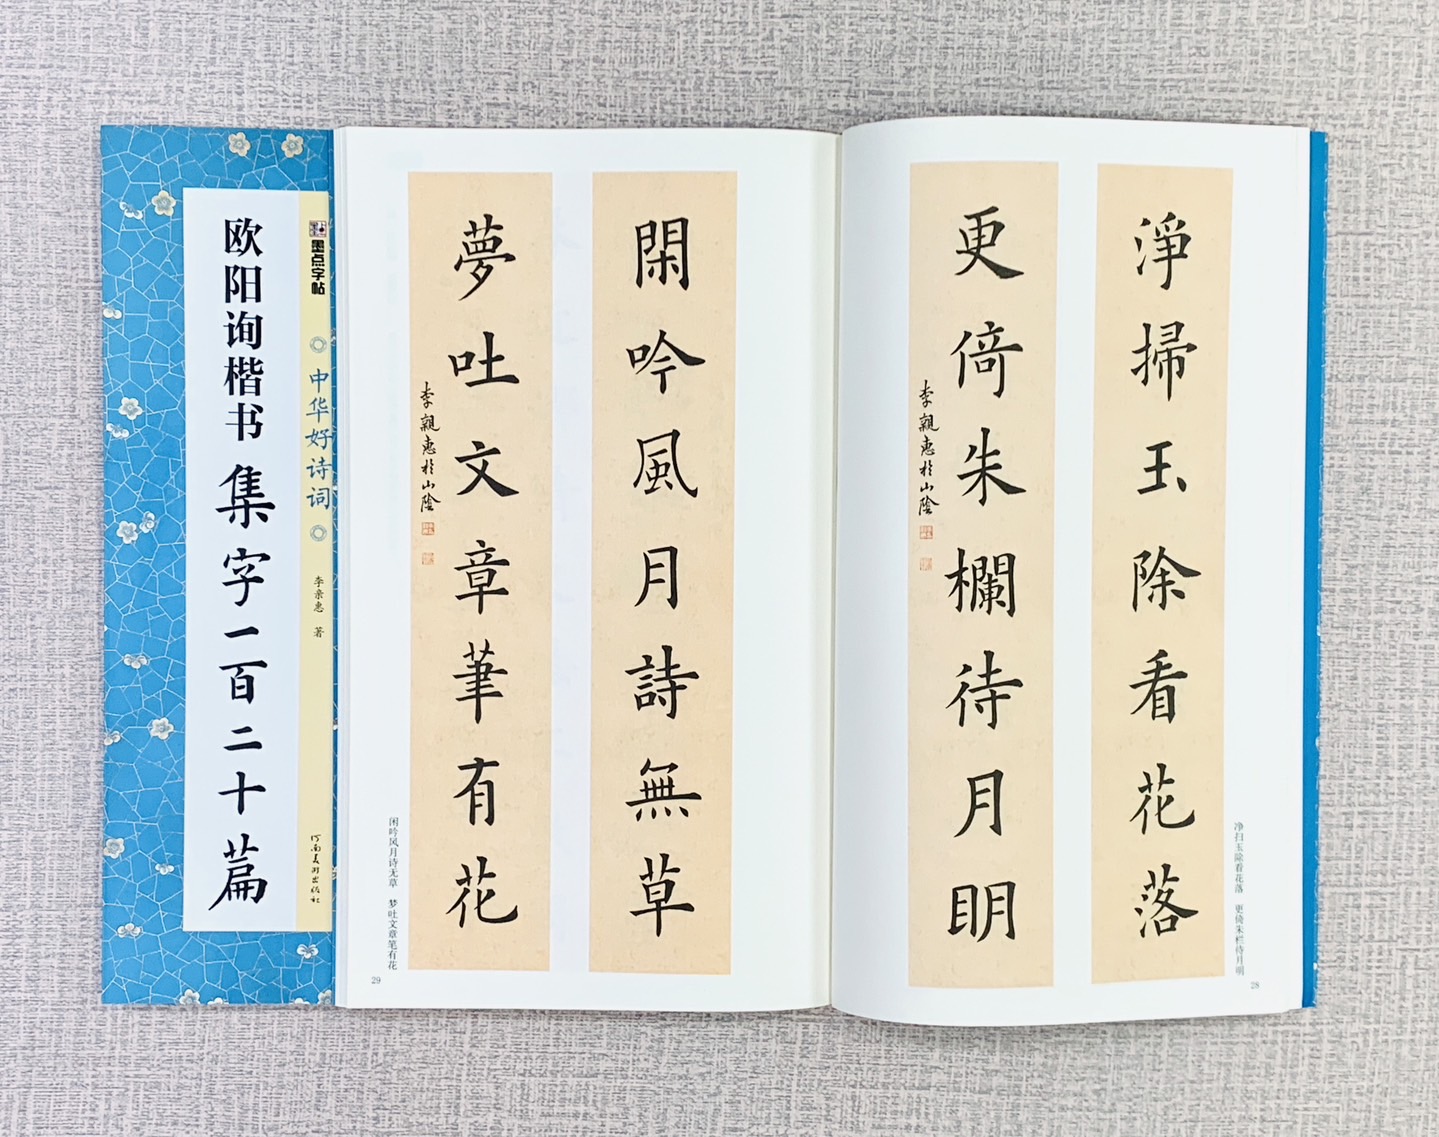 欧阳询楷书 集字一百二十篇
墨点字帖
中华好诗词
李亲惠 著
河南美术出版社
淨掃玉除看花落
更倚朱欄待月明
李親惠於山陰
净扫玉除看花落 更倚朱栏待月明
28
閑吟風月詩無草
夢吐文章筆有花
李親惠於山陰
闲吟风月诗无草 梦吐文章笔有花
29